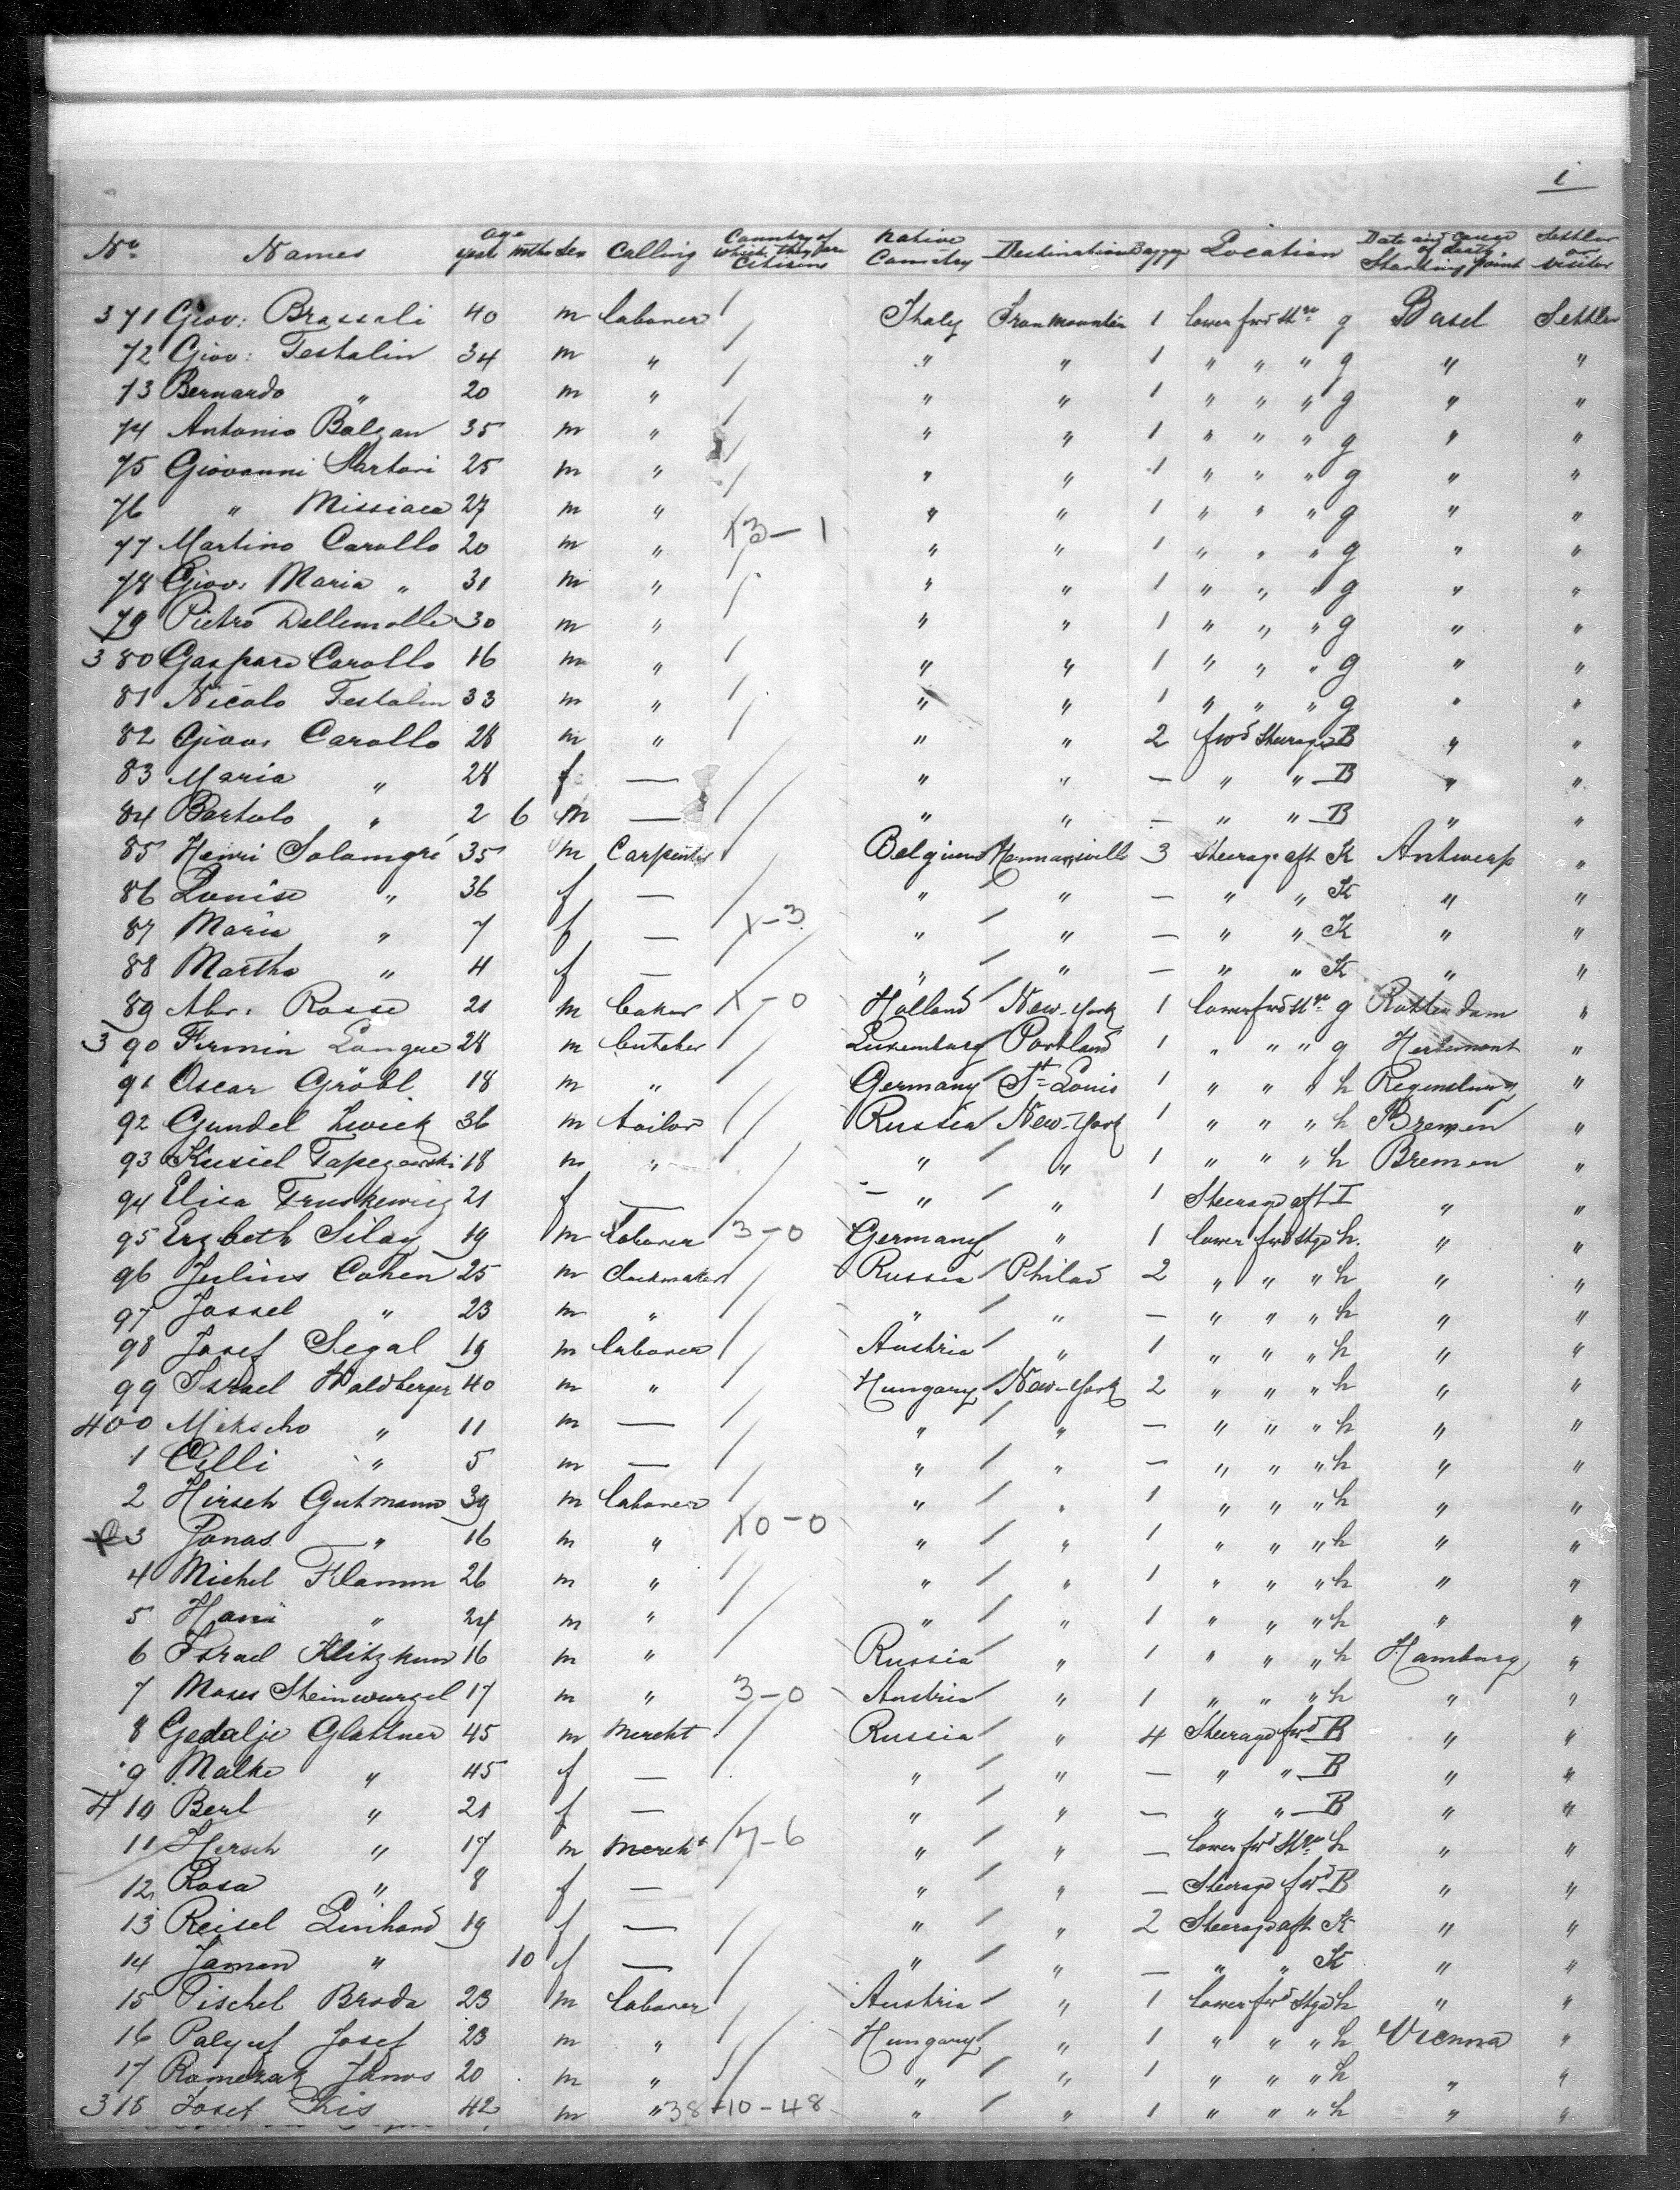 i
No. Names Age years mths Sex Calling Country of which they are Citizens Native Country Destination Bagge Location Date and cause of death Starting point Settler or visitor
3 71 Giov: Brassali 40 m laborer Italy Iron Mountain 1 lower fwd Stge g Basel Settler
72 Giov: Testolin 34 m " " " 1 " " " g " "
73 Bernardo " 20 m " " " 1 " " " g " "
74 Antonio Balzan 35 m " " " 1 " " " g " "
75 Giovanni Sartori 25 m " " " 1 " " " g " "
76 " Missiaca 27 m " " " 1 " " " g " "
77 Martino Carollo 20 m " 13-1 " " 1 " " " g " "
78 Giov: Maria " 31 m " " " 1 " " " g " "
79 Pietro Dellemolle 30 m " " " 1 " " " g " "
3 80 Gasparo Carollo 16 m " " " 1 " " " g " "
81 Nicolo Testolin 33 m " " " 1 " " " g " "
82 Giov: Carollo 28 m " " " 2 fwd Steerage B " "
83 Maria " 28 f — " " — " " B " "
84 Bartolo " 2 6 m — " " — " " B " "
85 Henri Salomgré 35 m Carpenter Belgium Hermansville 3 Steerage aft K Antwerp "
86 Louise " 36 f — " " — " " K " "
87 Maria " 7 f — 1-3 " " — " " K " "
88 Martha " 4 f — " " — " " K " "
89 Abr. Rosse 21 m baker 1-0 Holland New-York 1 lower fwd Stge g Rotterdam "
3 90 Firmin Langue 28 m butcher Luxemburg Portland 1 " " " g Herbemont "
91 Oscar Gröbl 18 m " Germany St Louis 1 " " " h Regensburg "
92 Gundel Zwick 36 m tailor Russia New-York 1 " " " h Bremen "
93 Kusiel Tapezowski 18 m " " " 1 " " " h Bremen "
94 Elisa Truskewicz 21 f — " " 1 Steerage aft I " "
95 Erzbeth Silay 19 m laborer 3-0 Germany " 1 lower fwd Stge h. " "
96 Julius Cohen 25 m Clockmaker Russia Philad 2 " " " h " "
97 Jossel " 23 m " " " — " " " h " "
98 Josef Segal 19 m laborer Austria " 1 " " " h " "
99 Israel Waldberger 40 m " Hungary New-York 2 " " " h " "
400 Mikscho " 11 m — " " — " " " h " "
1 Cilli " 5 m — " " — " " " h " "
2 Hirsch Gutmann 39 m laborer " " 1 " " " h " "
3 Jonas " 16 m " 10-0 " " 1 " " " h " "
4 Michel Flamm 26 m " " " 1 " " " h " "
5 Hani " 24 m " " " 1 " " " h " "
6 Israel Klitzkun 16 m " Russia " 1 " " " h Hamburg "
7 Moses Steinwurzel 17 m " 3-0 Austria " 1 " " " h " "
8 Gedalje Glattner 45 m Mercht Russia " 4 Steerage fwd B " "
9 Malke " 45 f — " " — " " B " "
4 10 Berl " 21 f — " " — " " B " "
11 Hersch " 17 m Mercht 7-6 " " — lower fwd Stge h " "
12 Rosa " 8 f — " " — Steerage fwd B " "
13 Reisel Linhand 19 f — " " 2 Steerage aft K " "
14 Jamen " 10 f — " " — " " K " "
15 Pischel Broda 23 m laborer Austria " 1 lower fwd Stge h " "
16 Palyuf Josef 23 m " Hungary " 1 " " " h Vienna "
17 Romezak Janos 20 m " " " 1 " " " h " "
318 Josef Kis 42 m " 38-10-48 " " 1 " " " h " "